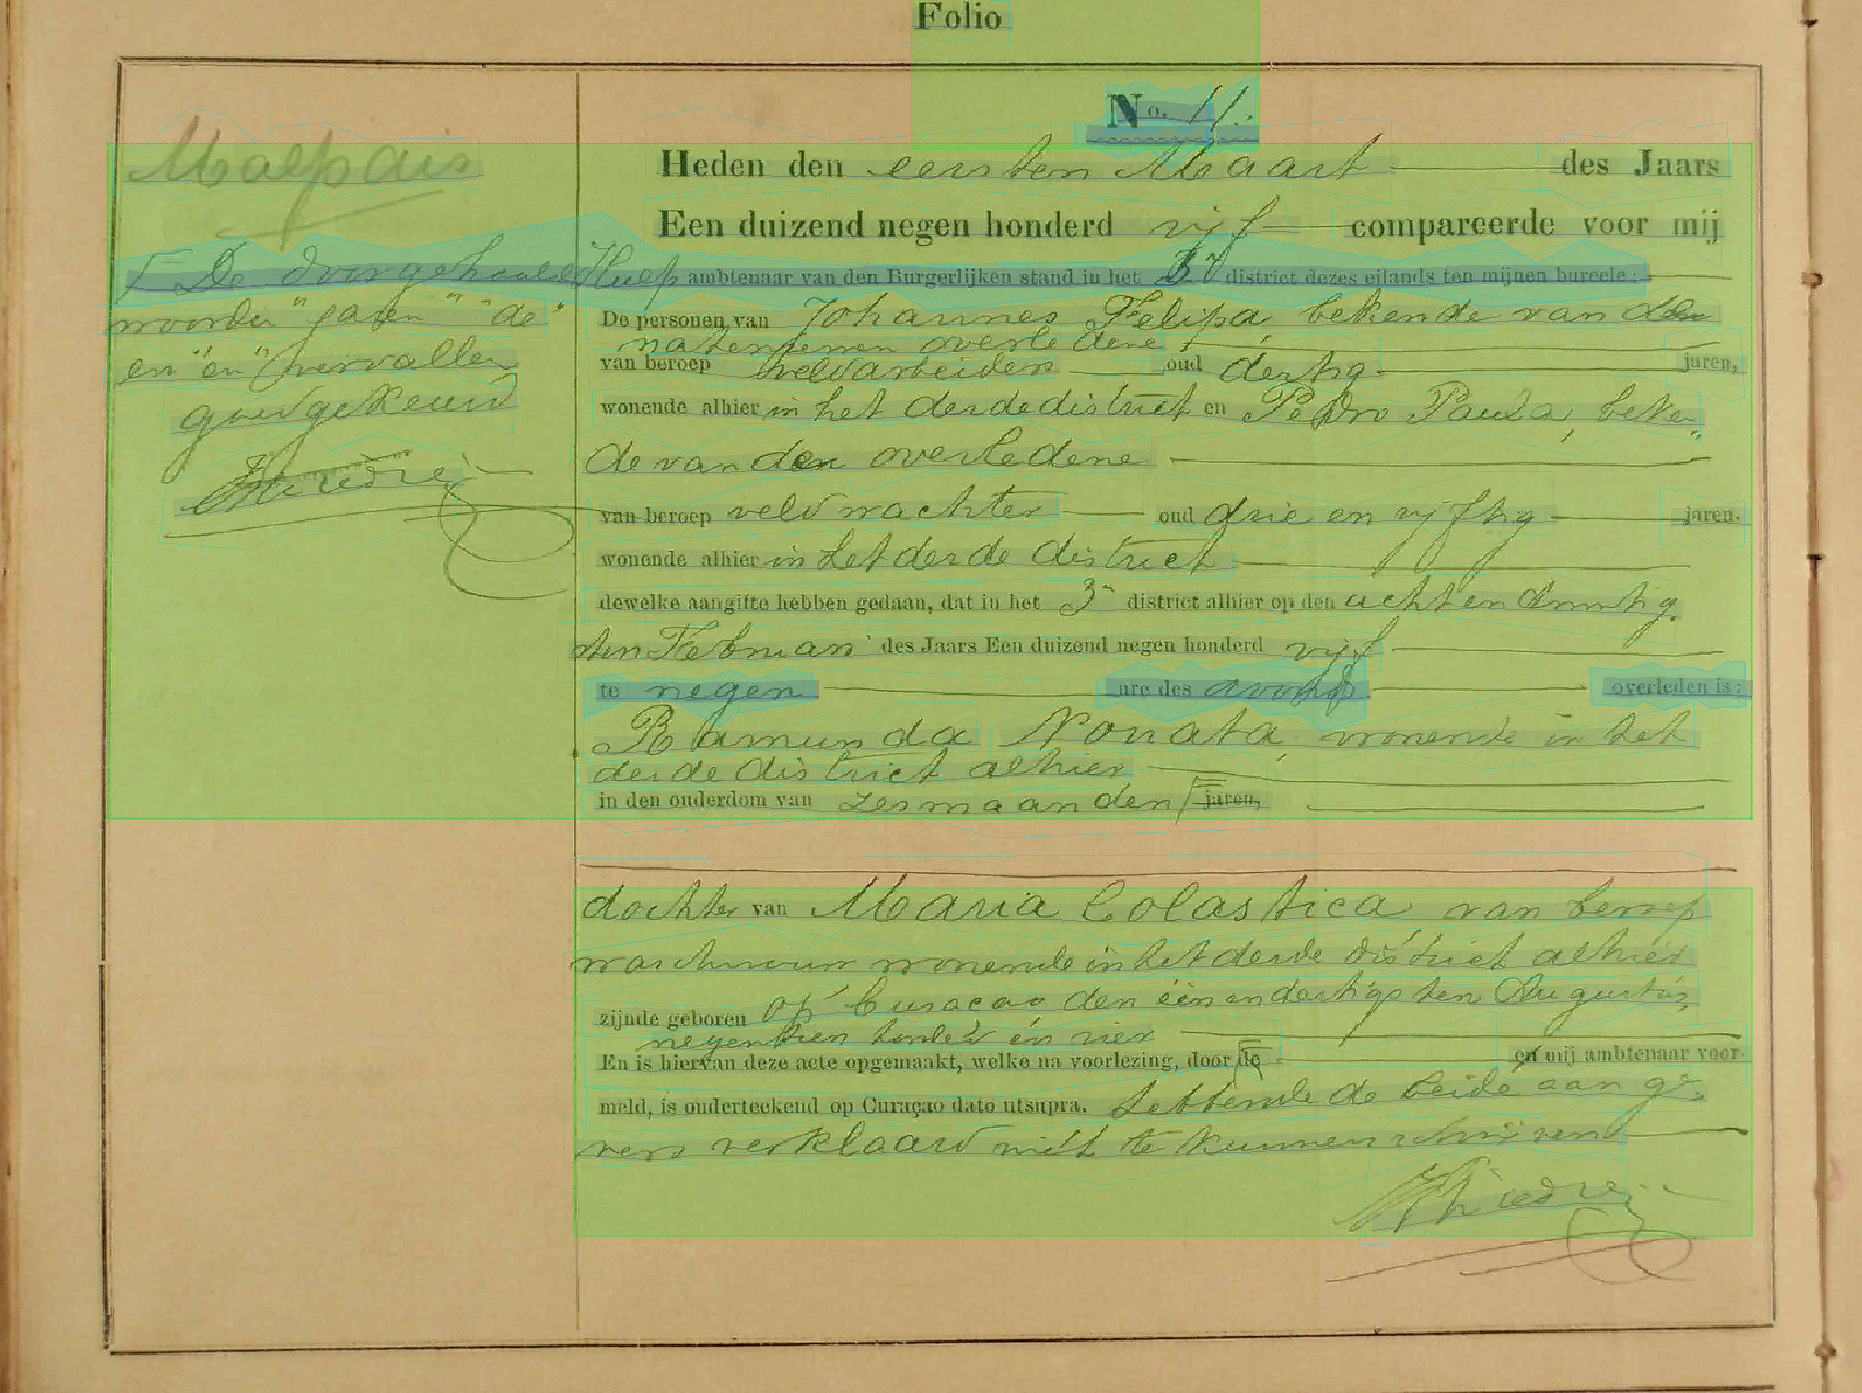 Folio
No. 11.
Malpais
Heden den eersten Maart des Jaars
Een duizend negen honderd vijf compareerde voor mij
Hulp ambtenaar van den Burgerlijken stand in het 3d district dezes eilands ten mijnen bureele:
De personen van Johannes Felipa, bekende van den
overledene
van beroep veldarbeider oud dertig jaren,
wonende alhier in het derde district en Pedro Paula, beken„
de van den overledene
van beroep veldwachter oud drie en vijftig jaren.
wonende alhier in het derde district
dewelke aangifte hebben gedaan, dat in het 3n district alhier op den acht en twintig„
sten Februari des Jaars Een duizend negen honderd vijf
te negen ure des avonds overleden is:
Ramunda Nonata, wonende in het
derde district alhier
in den ouderdom van zes maanden jaren,
dochter van Maria Colastica, van beroep
waschvrouw wonende in het derde district alhier
zijnde geboren op Curacao den één en dertigsten Augustus,
negentien honderd en vier
En is hiervan deze acte opgemaakt, welke na voorlezing, door de en mij ambtenaar voor-
meld, is onderteekend op Curaçao dato utsupra. Hebbende de beide aange„
vers verklaard niet te kunnen schrijven
De doorgehaalde
woorden "jaren" "de"
en "en" vervallen
goedgekeurd